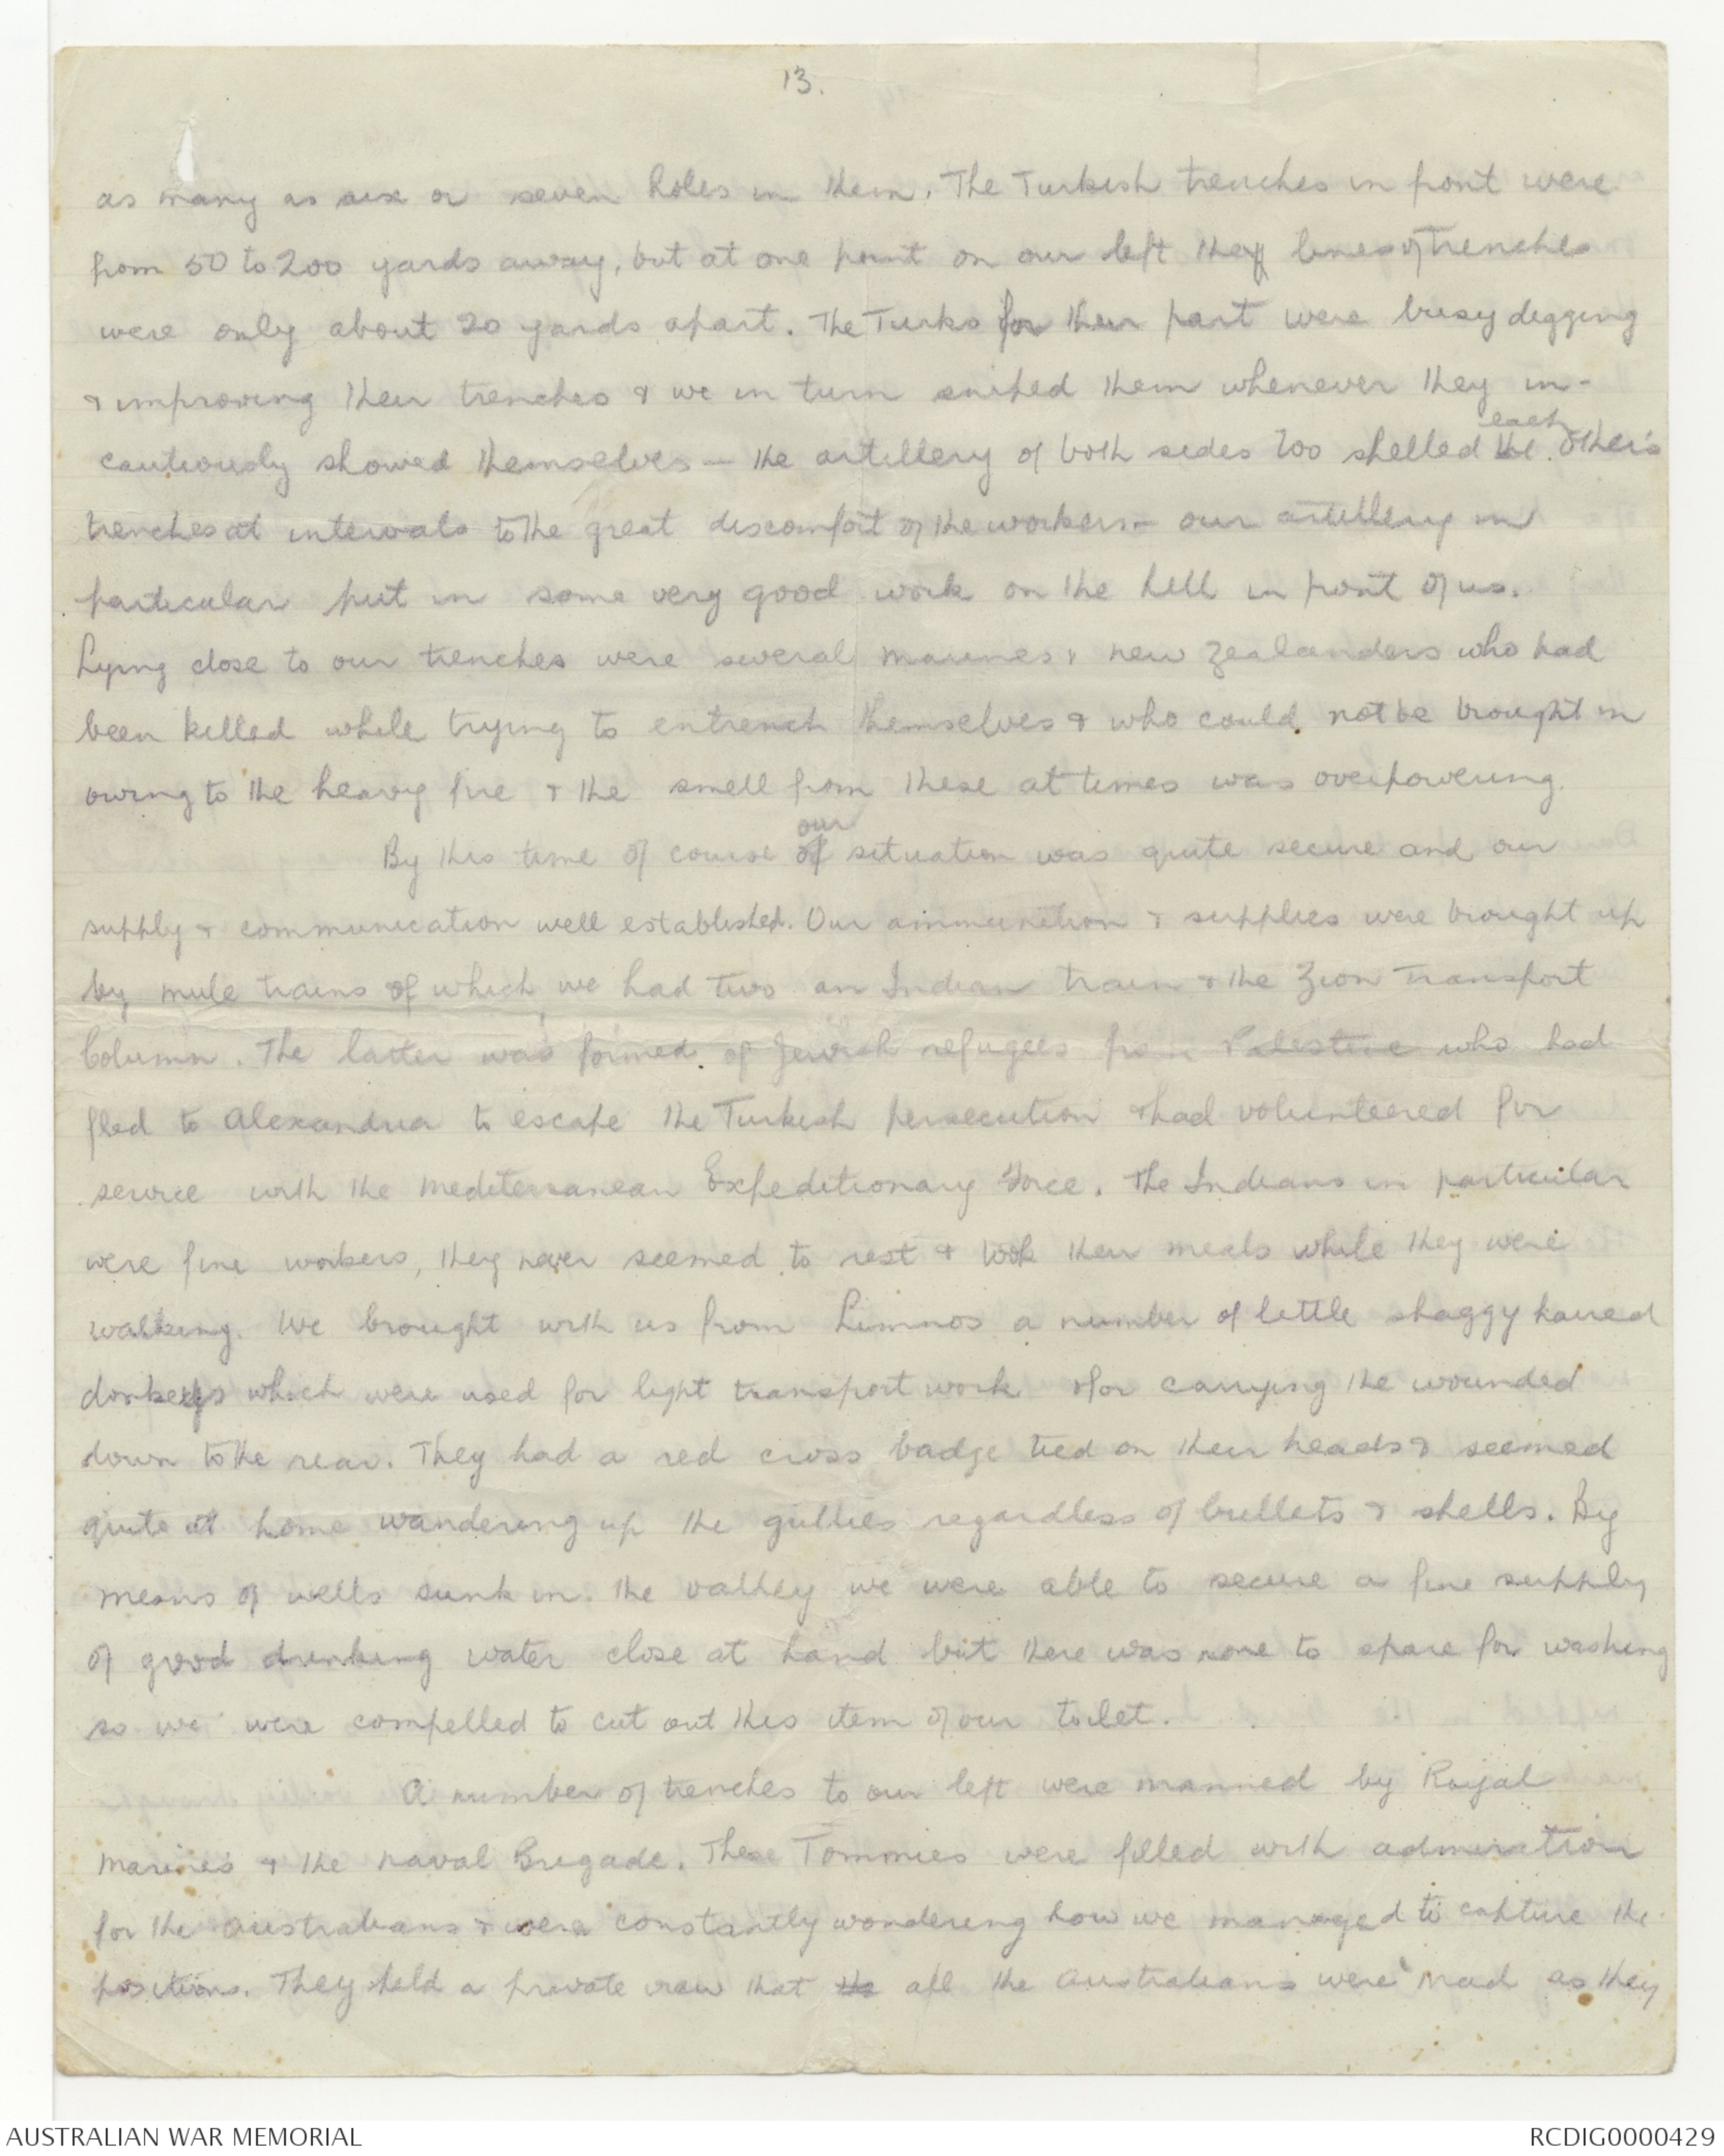 13.
as many as six or seven holes in them. The Turkish trenches in front were
from 50 to 200 yards away, but at one point on our left the lines of trenches
were only about 20 yards apart. The Turks for their part were busy digging
& improving their trenches & we in turn sniped them whenever they in-
cautiously showed themselves — the artillery of both sides too shelled the each other's
trenches at intervals to the great discomfort of the workers — our artillery in
particular put in some very good work on the hill in front of us.
Lying close to our trenches were several marines & new Zealanders who had
been killed while trying to entrench themselves & who could not be brought in
owing to the heavy fire & the smell from these at times was overpowering.
By this time of course of our situation was quite secure and our
supply & communication well established. Our ammunition & supplies were brought up
by mule trains of which we had two an Indian train & the Zion Transport
Column. The latter was formed of Jewish refugees from Palestine who had
fled to Alexandria to escape the Turkish persecution & had volunteered for
service with the Mediterranean Expeditionary Force. The Indians in particular
were fine workers, they never seemed to rest & took their meals while they were
walking. We brought with us from Limnos a number of little shaggy haired
donkeys which were used for light transport work & for carrying the wounded
down to the rear. They had a red cross badge tied on their heads & seemed
quite at home wandering up the gullies regardless of bullets & shells. By
means of wells sunk in the valley we were able to secure a fine supply
of good drinking water close at hand but there was none to spare for washing
so we were compelled to cut out this item of our toilet.
A number of trenches to our left were manned by Royal
Marines & the naval Brigade. These Tommies were filled with admiration
for the Australians & were constantly wondering how we managed to capture the
positions. They held a private view that the all the Australians were mad as they
AUSTRALIAN WAR MEMORIAL
RCDIG0000429